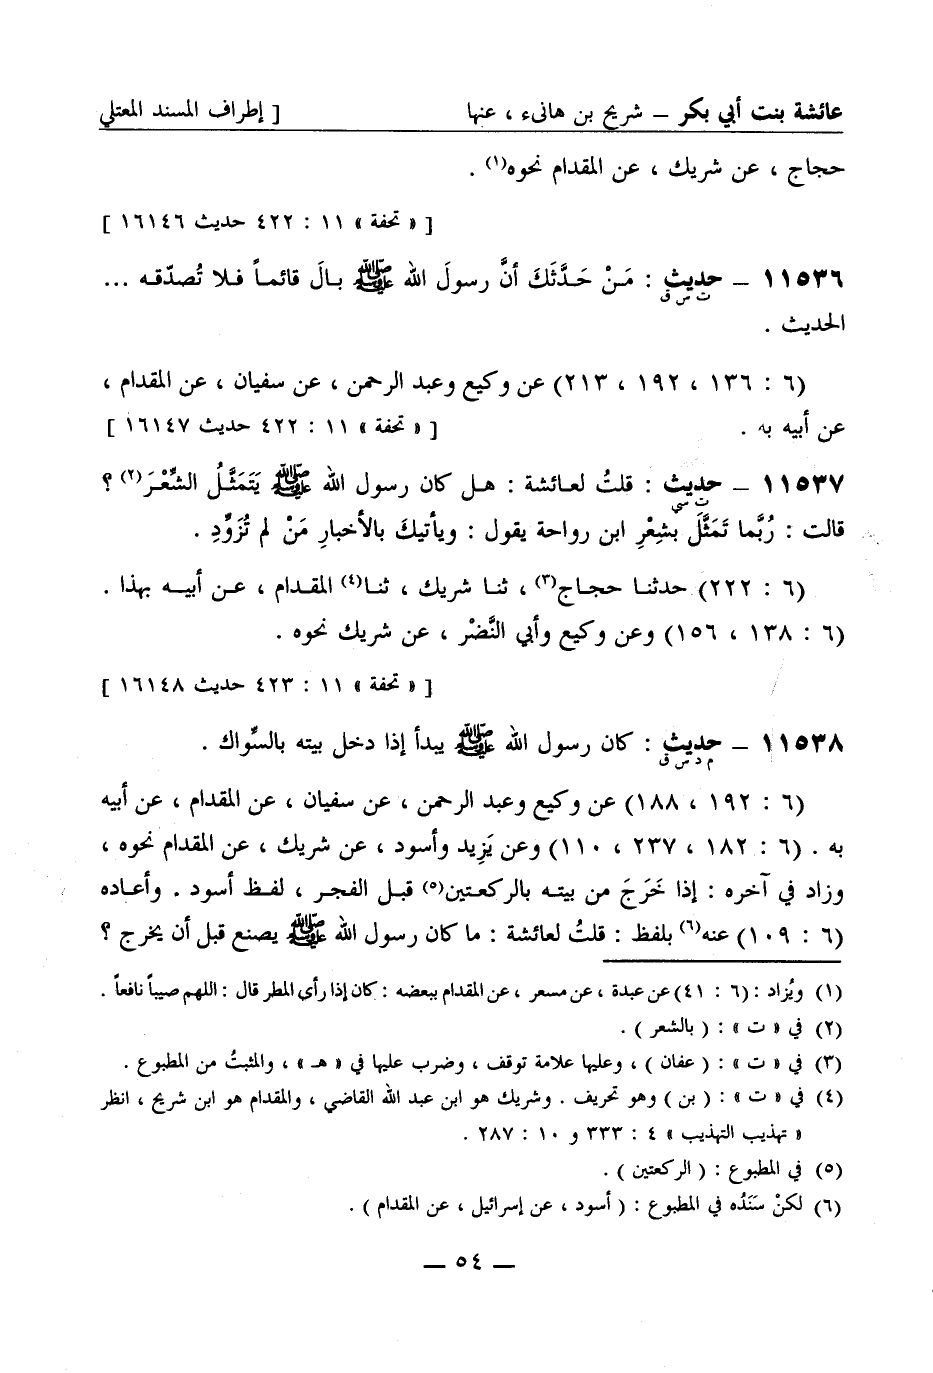 عائشة بنت أبي بكر – شريح بن هانىء ، عنها [ إطراف المسند المعتلي
حجاج ، عن شريك ، عن المقدام نحوه(١) .
[ « تحفة » ١١ : ٤٢٢ حديث ١٦١٤٦ ]
١١٥٣٦ – حديث : مَنْ حَدَّثَكَ أنَّ رسولَ الله ﷺ بـالَ قائمـاً فـلا تُصدّقـه ...
ت س ق
الحديث .
(٦ : ١٣٦ ، ١٩٢ ، ٢١٣) عن وكيع وعبد الرحمن ، عن سفيان ، عن المقدام ،
عن أبيه به . [ « تحفة » ١١ : ٤٢٢ حديث ١٦١٤٧ ]
١١٥٣٧ – حديث : قلتُ لعائشة : هـل كان رسول الله ﷺ يَتَمَثَّـلُ الشِّعْـرَ(٢) ؟
ت سي
قالت : رُبَّما تَمَثَّلَ بشِعْرِ ابن رواحة يقول : ويأتيكَ بالأخبارِ مَنْ لم تُزَوِّدِ .
(٦ : ٢٢٢) حدثنـا حجـاج(٣) ، ثنـا شريك ، ثنـا(٤) المقـدام ، عـن أبيـه بهذا .
(٦ : ١٣٨ ، ١٥٦) وعن وكيع وأبي النَّضْر ، عن شريك نحوه .
[ « تحفة » ١١ : ٤٢٣ حديث ١٦١٤٨ ]
١١٥٣٨ – حديث : كان رسول الله ﷺ يبدأ إذا دخل بيته بالسِّواك .
م د س ق
(٦ : ١٩٢ ، ١٨٨) عن وكيع وعبد الرحمن ، عن سفيان ، عن المقدام ، عن أبيه
به . (٦ : ١٨٢ ، ٢٣٧ ، ١١٠) وعن يَزِيد وأسود ، عن شريك ، عن المقدام نحوه ،
وزاد في آخره : إذا خَرَجَ من بيتـه بالركعتين(٥) قبل الفجـر ، لفـظ أسود . وأعـاده
(٦ : ١٠٩) عنه(٦) بلفظ : قلتُ لعائشة : ما كان رسول الله ﷺ يصنع قبل أن يخرج ؟
(١) ويُزاد : (٦ : ٤١) عن عبدة ، عن مسعر ، عن المقدام ببعضه : كان إذا رأى المطر قال : اللهم صيباً نافعاً .
(٢) في « ت » : ( بالشعر ) .
(٣) في « ت » : ( عفان ) ، وعليها علامة توقف ، وضرب عليها في « هـ » ، والمثبتُ من المطبوع .
(٤) في « ت » : ( بن ) وهو تحريف . وشريك هو ابن عبد الله القاضي ، والمقدام هو ابن شريح ، انظر
« تهذيب التهذيب » ٤ : ٣٣٣ و ١٠ : ٢٨٧ .
(٥) في المطبوع : ( الركعتين ) .
(٦) لكنْ سَنَدُه في المطبوع : ( أسود ، عن إسرائيل ، عن المقدام ) .
— ٥٤ —